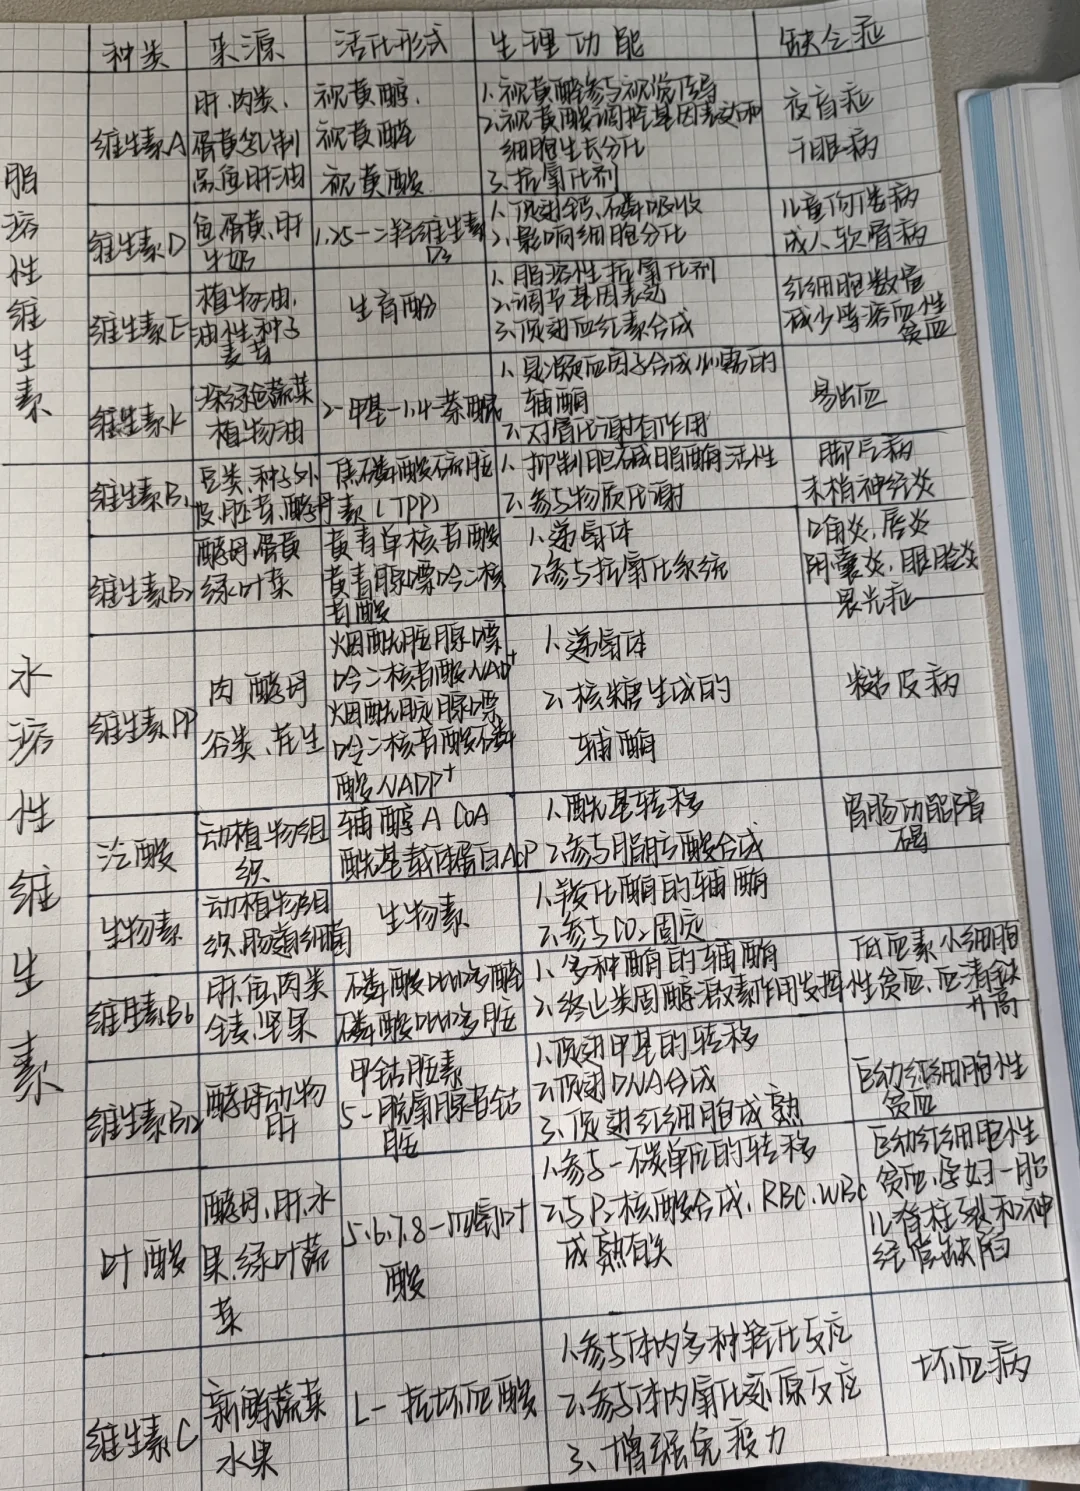 种类 来源 活化形式 生理功能 缺乏症
脂溶性维生素
维生素A
肝.肉类、
蛋黄乳制
品.鱼肝油
视黄醇、
视黄醛
视黄酸
1、视黄醛参与视觉传导
2、视黄酸调控基因表达和
细胞生长分化
3、抗氧化剂
夜盲症
干眼病
维生素D
鱼.蛋黄.肝
牛奶
1.25-二羟维生素
D3
1、促进钙、磷吸收
2、影响细胞分化
儿童佝偻病
成人软骨病
维生素E
植物油,
油性种子
麦芽
生育酚
1、脂溶性抗氧化剂
2、调节基因表达
3、促进血红素合成
红细胞数量
减少等溶血性
贫血
维生素K
深绿色蔬菜
植物油
2-甲基-1,4-萘醌
1、是凝血因子合成必需的
辅酶
2、对骨代谢有作用
易出血
水溶性维生素
维生素B1
豆类、种子外
皮、胚芽、酵母
焦磷酸硫胺
素(TPP)
1、抑制胆碱酯酶活性
2、参与物质代谢
脚气病
末梢神经炎
维生素B2
酵母.蛋黄
绿叶菜
黄素单核苷酸
黄素腺嘌呤二核
苷酸
1、递氢体
2、参与抗氧化系统
口角炎,唇炎
阴囊炎,眼睑炎
畏光症
维生素PP
肉 酵母
谷类、花生
烟酰胺腺嘌
呤二核苷酸NAD+
烟酰胺腺嘌
呤二核苷酸磷
酸NADP+
1、递氢体
2、核糖生成的
辅酶
糙皮病
泛酸
动植物组
织
辅酶A CoA
酰基载体蛋白ACP
1、酰基转移
2、参与脂肪酸合成
胃肠功能障
碍
生物素
动植物组
织.肠道细菌
生物素
1、羧化酶的辅酶
2、参与CO2固定
维生素B6
肝.鱼.肉类
全麦.坚果
磷酸吡哆醛
磷酸吡哆胺
1、多种酶的辅酶
2、终止类固醇激素作用发挥
低血素小细胞
性贫血,血清铁
升高
维生素B12
酵母动物
肝
甲钴胺素
5-脱氧腺苷钴
胺
1、促进甲基的转移
2、促进DNA合成
3、促进红细胞成熟
巨幼红细胞性
贫血
叶酸
酵母、肝、水
果、绿叶蔬
菜
5.6.7.8-四氢叶
酸
1、参与一碳单位的转移
2、与Pr核酸合成、RBC、WBC
成熟有关
巨幼红细胞性
贫血,孕妇-胎
儿脊柱裂和神
经管缺陷
维生素C
新鲜蔬菜
水果
L-抗坏血酸
1、参与体内多种羟化反应
2、参与体内氧化还原反应
3、增强免疫力
坏血病